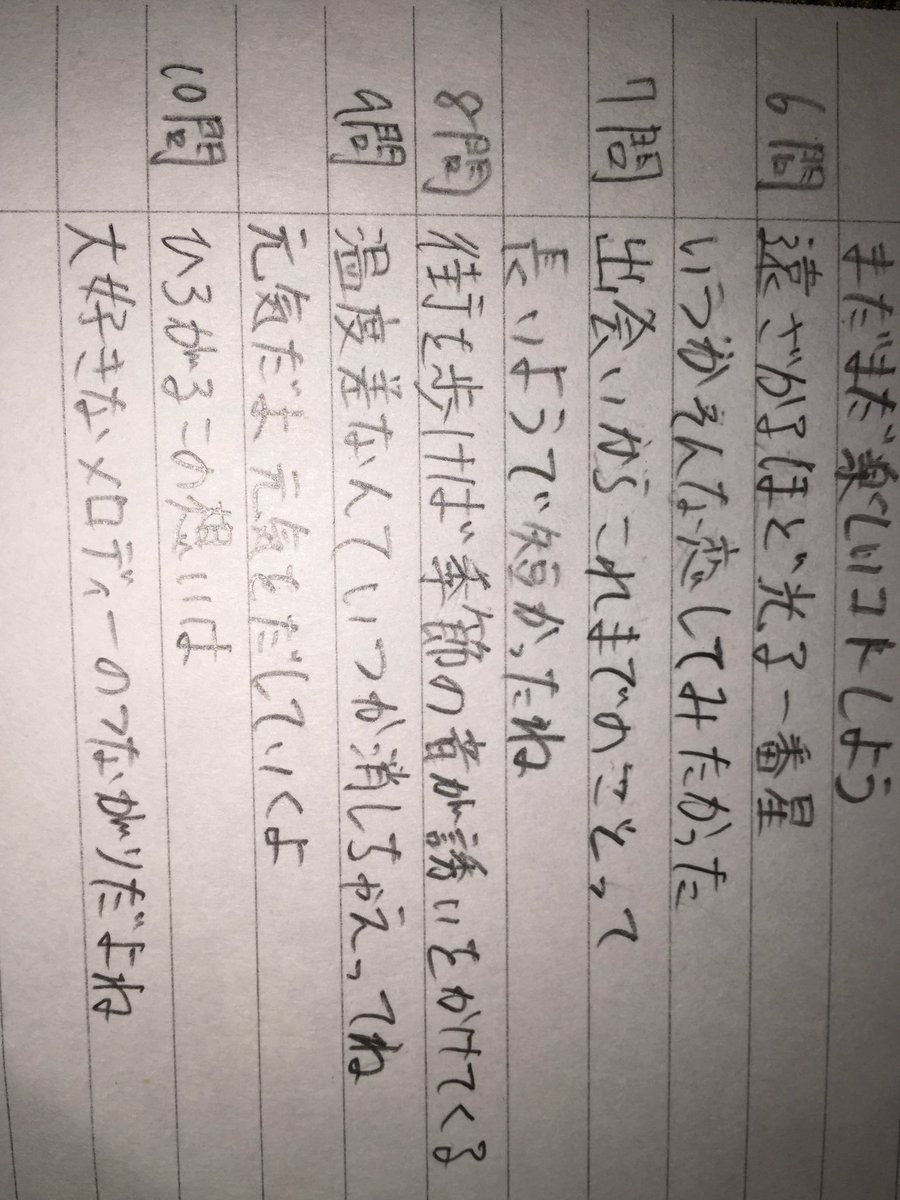 まだまだ楽しいコトしよう
6問 遠ざかるほど光る一番星
いつかそんな恋してみたかった
7問 出会いからこれまでのことって
長いようで短かったね
8問 街を歩けば季節の音が誘いをかけてくる
9問 温度差なんていつか消しちゃえってね
元気だよ 元気をだしていくよ
10問 ひろがるこの想いは
大好きなメロディーのつながりだよね